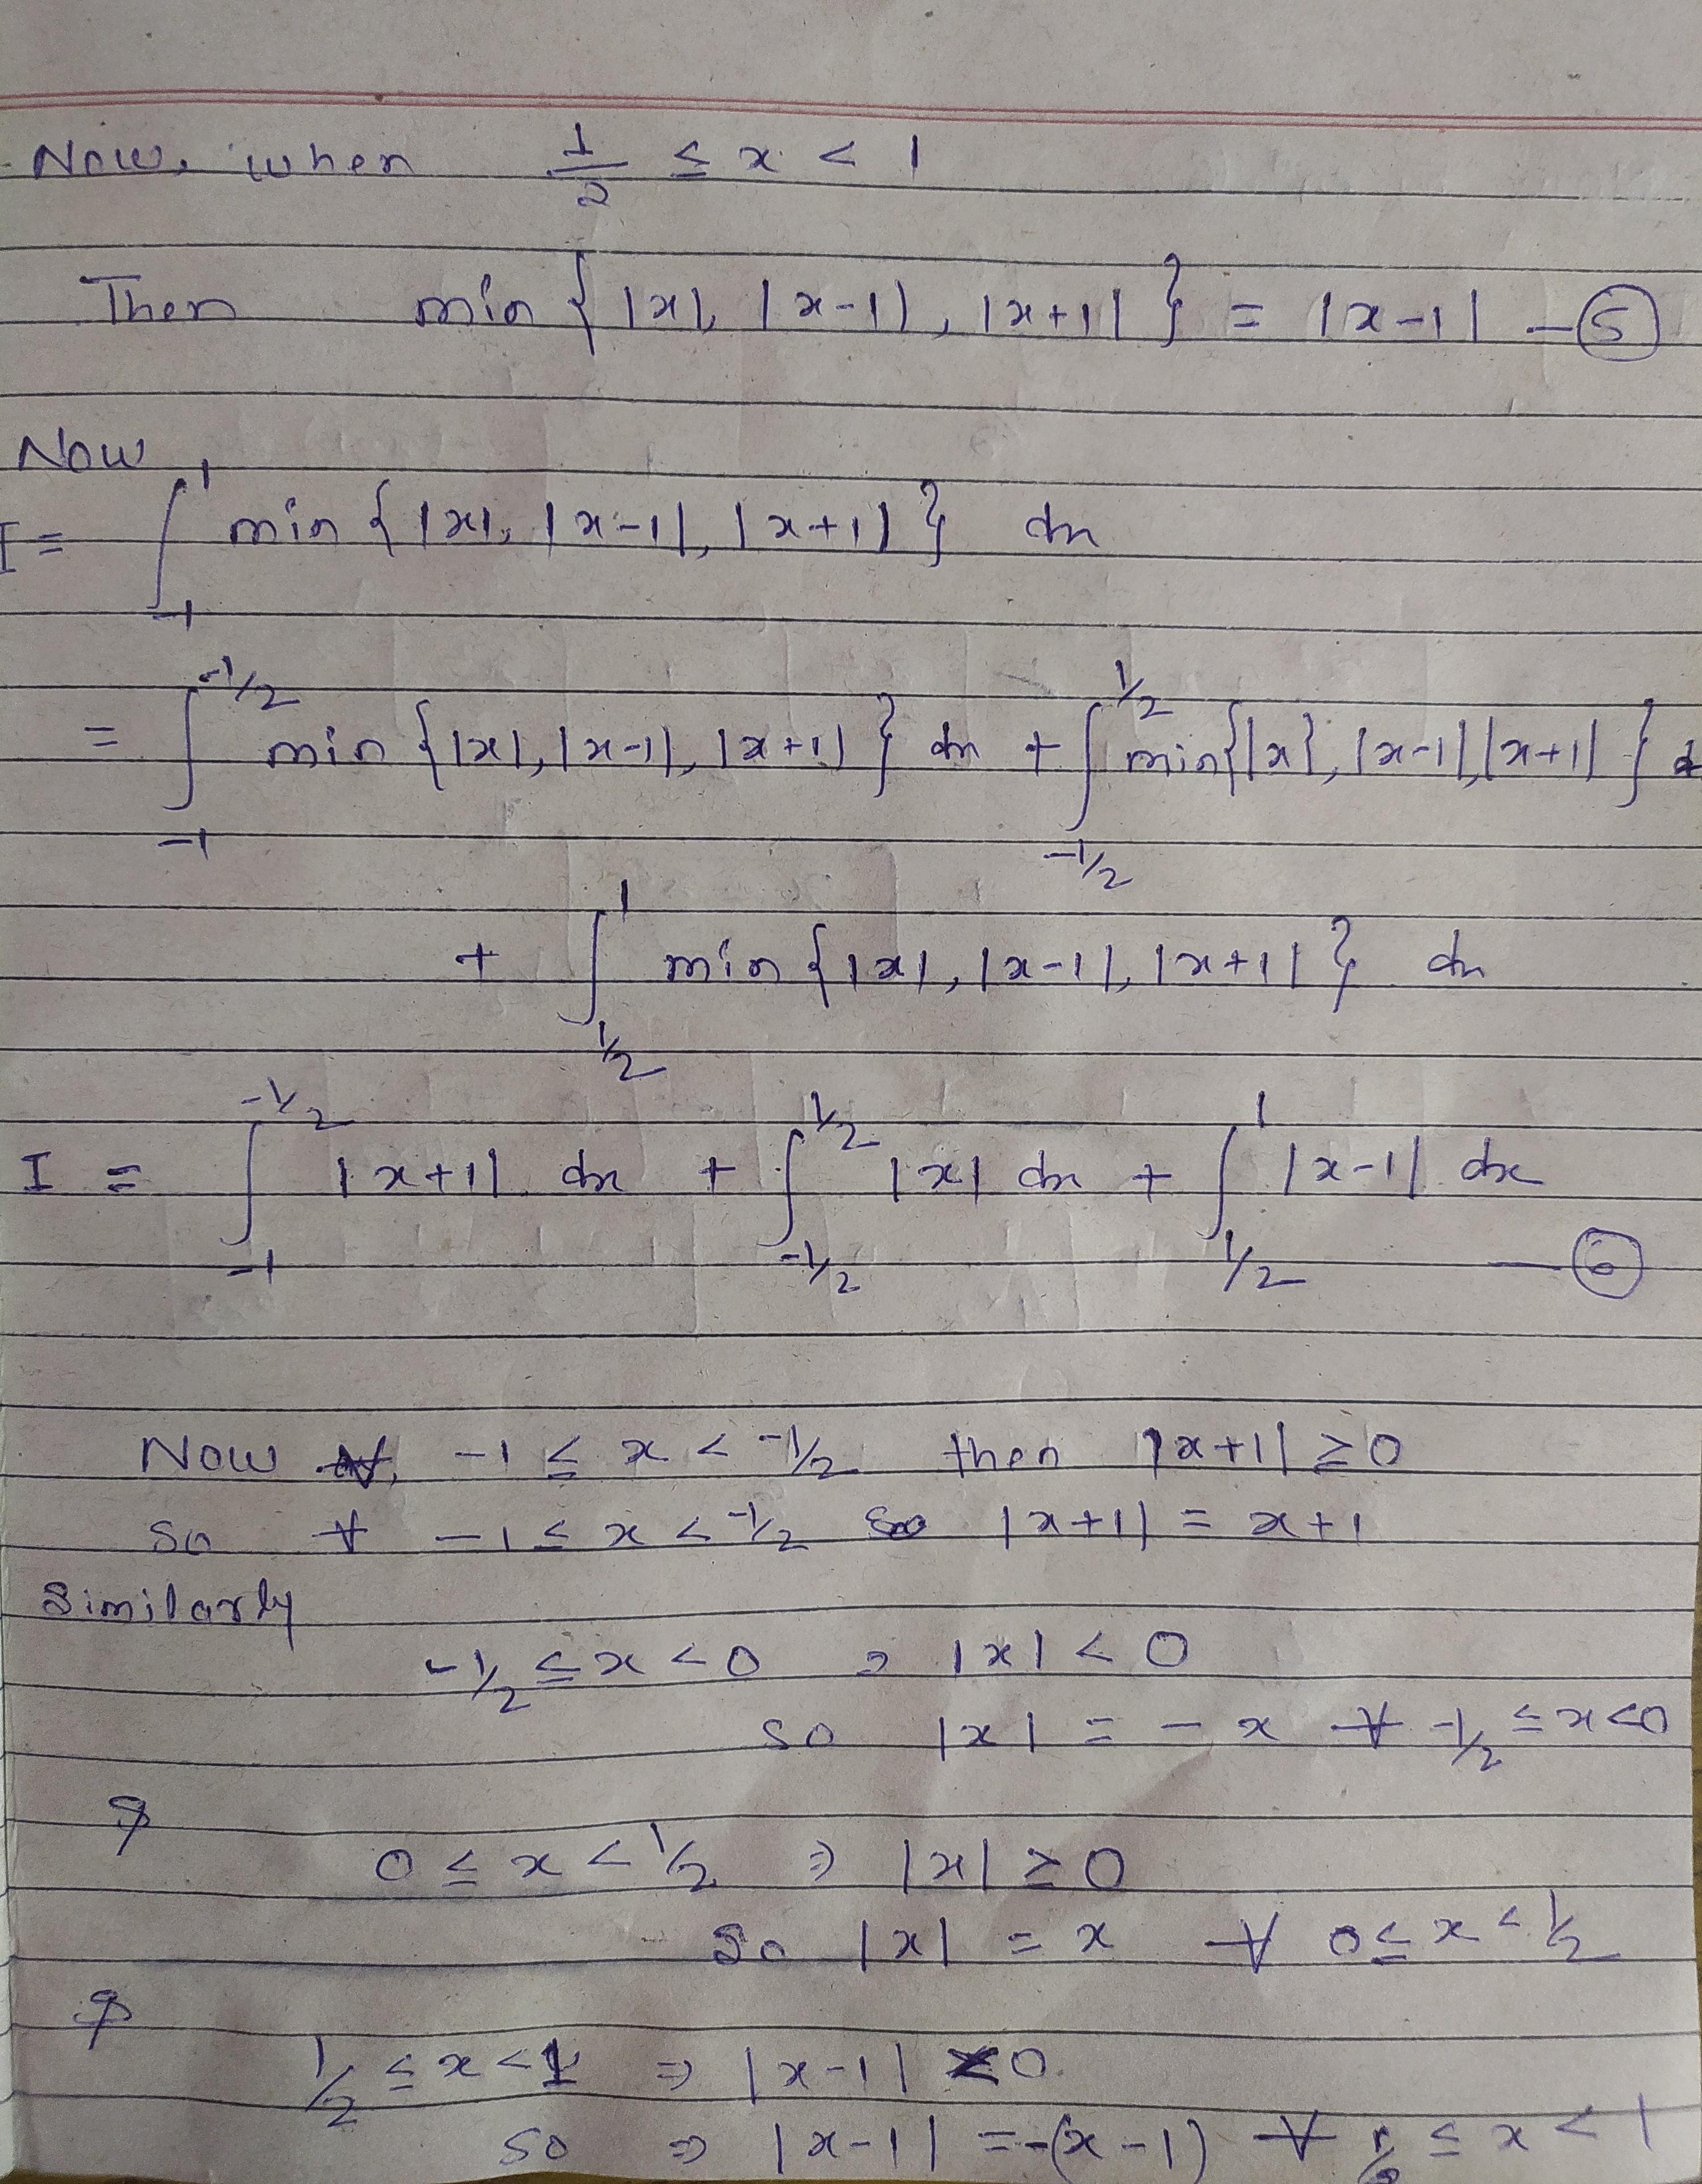 Now, when 1/2 ≤ x < 1
Then min { |x|, |x-1|, |x+1| } = |x-1| — ⑤
Now
I = ∫_{-1}^{1} min { |x|, |x-1|, |x+1| } dx
= ∫_{-1}^{-1/2} min { |x|, |x-1|, |x+1| } dx + ∫_{-1/2}^{1/2} min { |x|, |x-1|, |x+1| } d
+ ∫_{1/2}^{1} min { |x|, |x-1|, |x+1| } dx
I = ∫_{-1}^{-1/2} |x+1| dx + ∫_{-1/2}^{1/2} |x| dx + ∫_{1/2}^{1} |x-1| dx
— ⑥
Now -1 ≤ x < -1/2 then |x+1| ≥ 0
so ∀ -1 ≤ x < -1/2 so |x+1| = x+1
Similarly
-1/2 ≤ x < 0 ⇒ |x| < 0
so |x| = -x ∀ -1/2 ≤ x < 0
&
0 ≤ x < 1/2 ⇒ |x| ≥ 0
So |x| = x ∀ 0 ≤ x < 1/2
&
1/2 ≤ x < 1 ⇒ |x-1| < 0
so ⇒ |x-1| = -(x-1) ∀ 1/2 ≤ x < 1